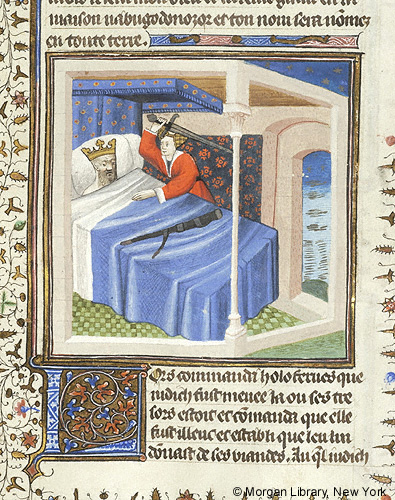 maison nabugodonozor et ton nom sera nōmez
en toute terre.
Ors commanda holofernes que
iudich fust menee la ou ses tre
sors estoit et cōmanda que elle
fust illeuc et establi que len lui
donast de ses viandes. Au q̄l iudich
© Morgan Library, New York